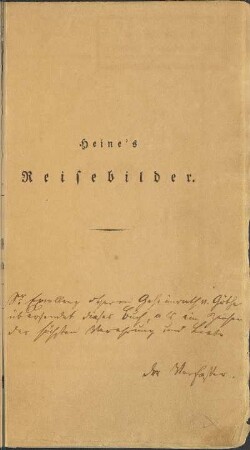 Heine's
Reisebilder.
Sr. Excellenz Herrn Geheimrath v. Göthe
übersendet dieses Buch, als ein Zeichen
der höchsten Verehrung und Liebe
der Verfasser.